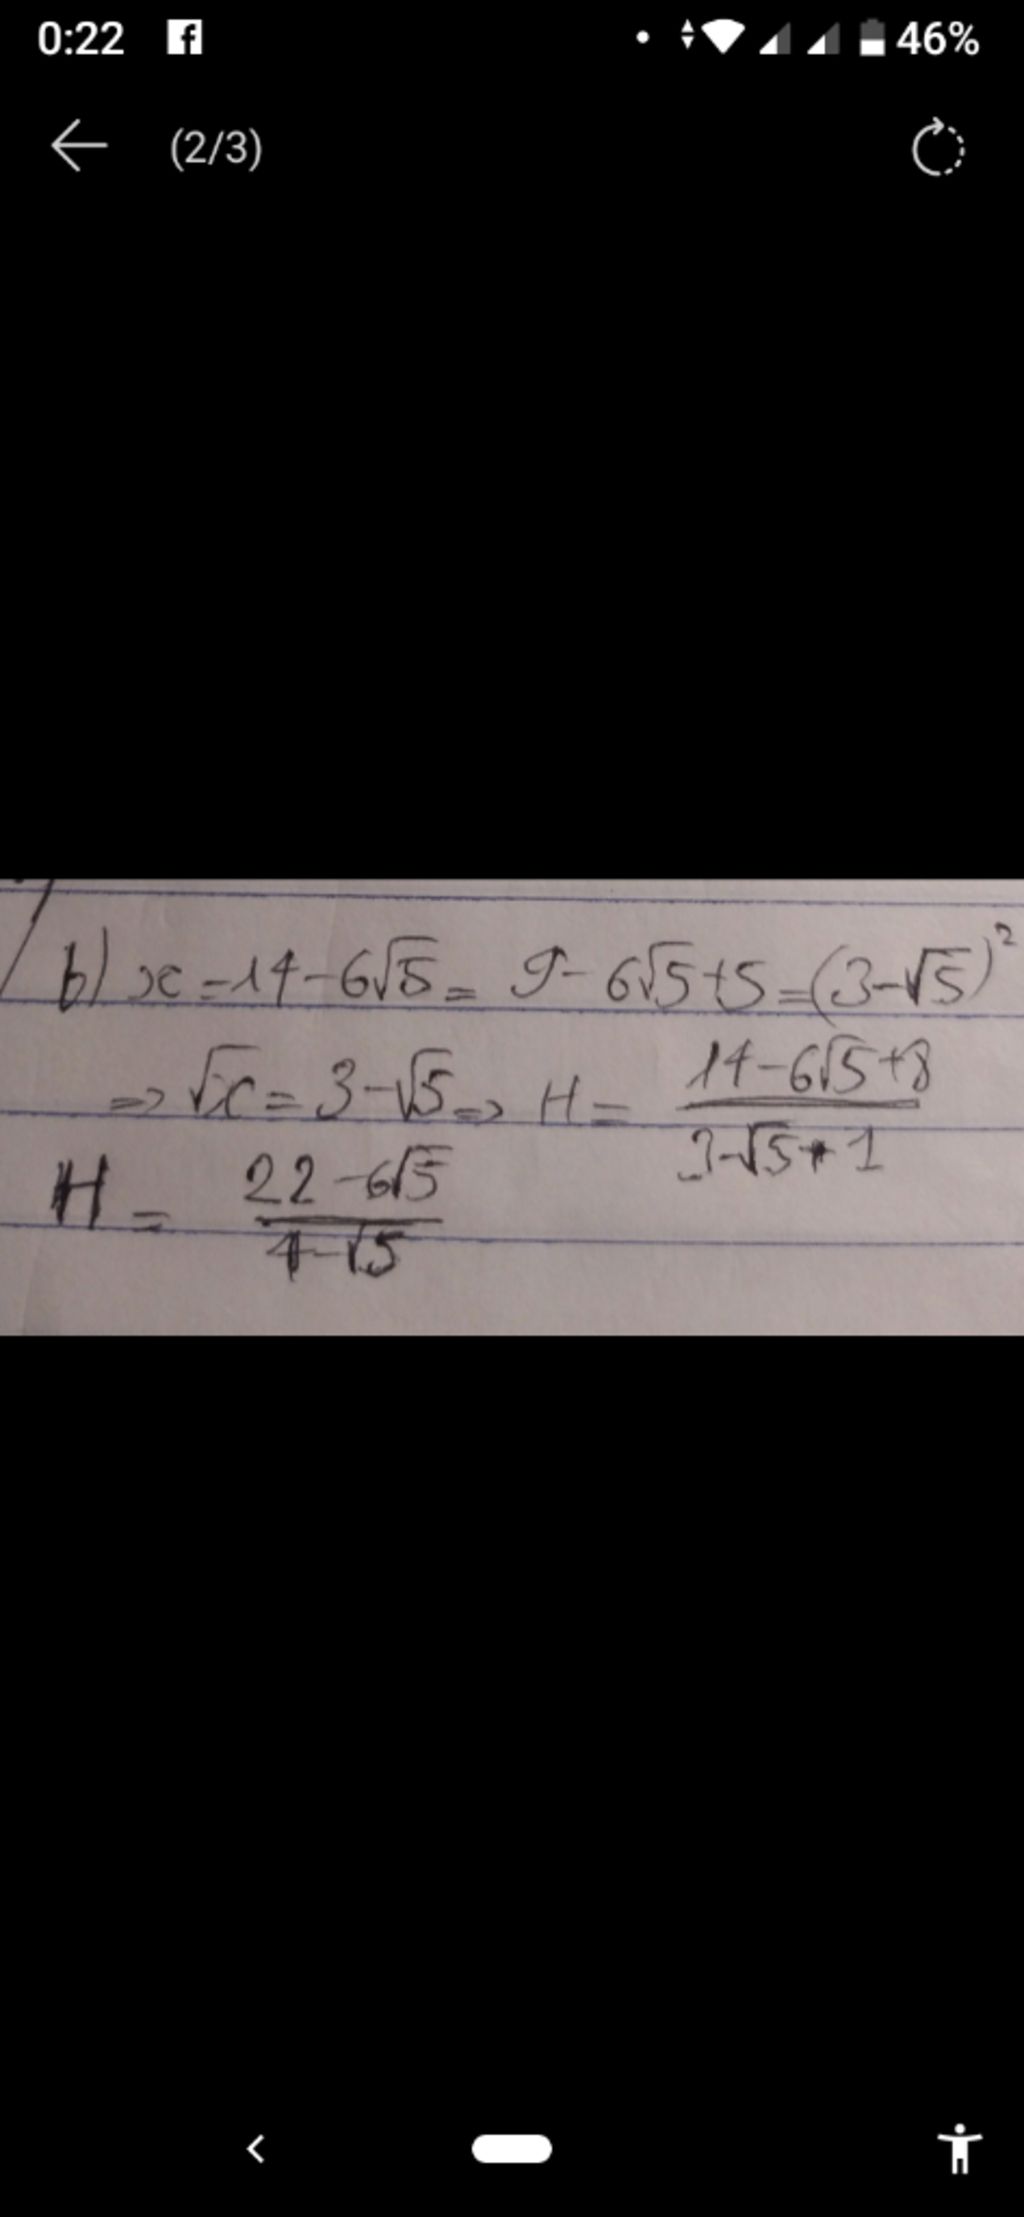 0:22 46%
(2/3)
b) x = 14 - 6√5 = 9 - 6√5 + 5 = (3 - √5)²
=> √x = 3 - √5 => H = (14 - 6√5 + 8)/(3 - √5 + 1)
H = (22 - 6√5)/(4 - √5)